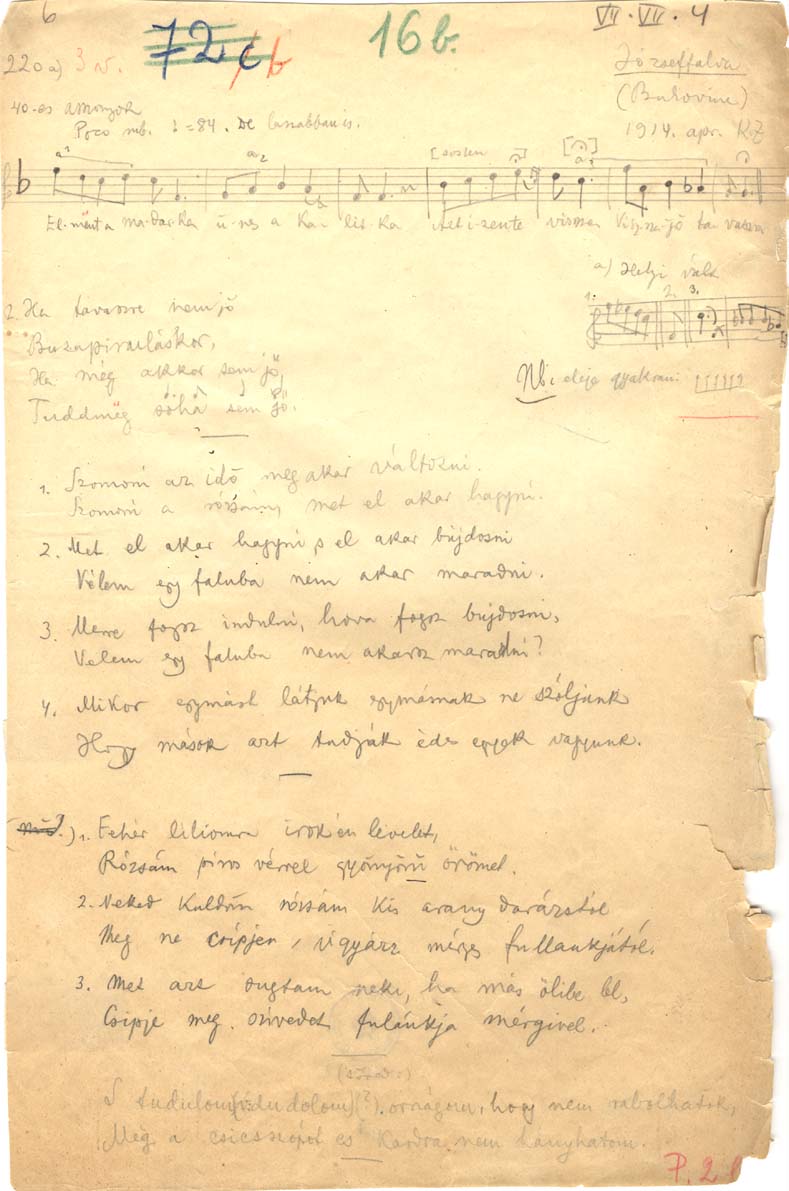 6
72 c/b
16 b.
VII. VII. 4
220 a) 3 v.
Józseffalva
(Bukovina)
1914. apr. K.Z
40-es asszonyok
Poco rub. ♩=84. De lassabban is.
El-mënt a ma-dar-ka ü-res a ka-lit-ka visszа Visz-sza-jő ta-vaszra
a) Helyi vált.
1. 2. 3.
2. Ha tavaszra nem jő
Buzapirualáskor,
Ha még akkor sem jő,
Tuddmëg soha sem jő.
Nb: eleje gyakran:
1. Szomorú az idő meg akar változni.
Szomorú a rózsám, met el akar hagyni.
2. Met el akar hagyni, s el akar bújdosni
Vélem egy faluba nem akar maradni.
3. Merre fogsz indulni, hova fogsz bujdosni,
Velem egy faluba nem akarsz maradni?
4. Mikor egymást látjuk egymásnak ne szóljunk
Hogy mások azt tudják édes egyek vagyunk.
1. Fehér liliomra irok én levelet,
Rózsám piros vérrel gyönyörü örömet.
2. Neked küldöm rózsám kis arany darázstól
Meg ne csipjen, vigyázz mérges fullánkjától.
3. Met azt sugtam neki, ha más ölibe lel,
Csipje meg szivedet fulánkja mérgivel.
országom, hogy nem rabolhatok,
Még a és kardra nem hányhatom.
P. 2